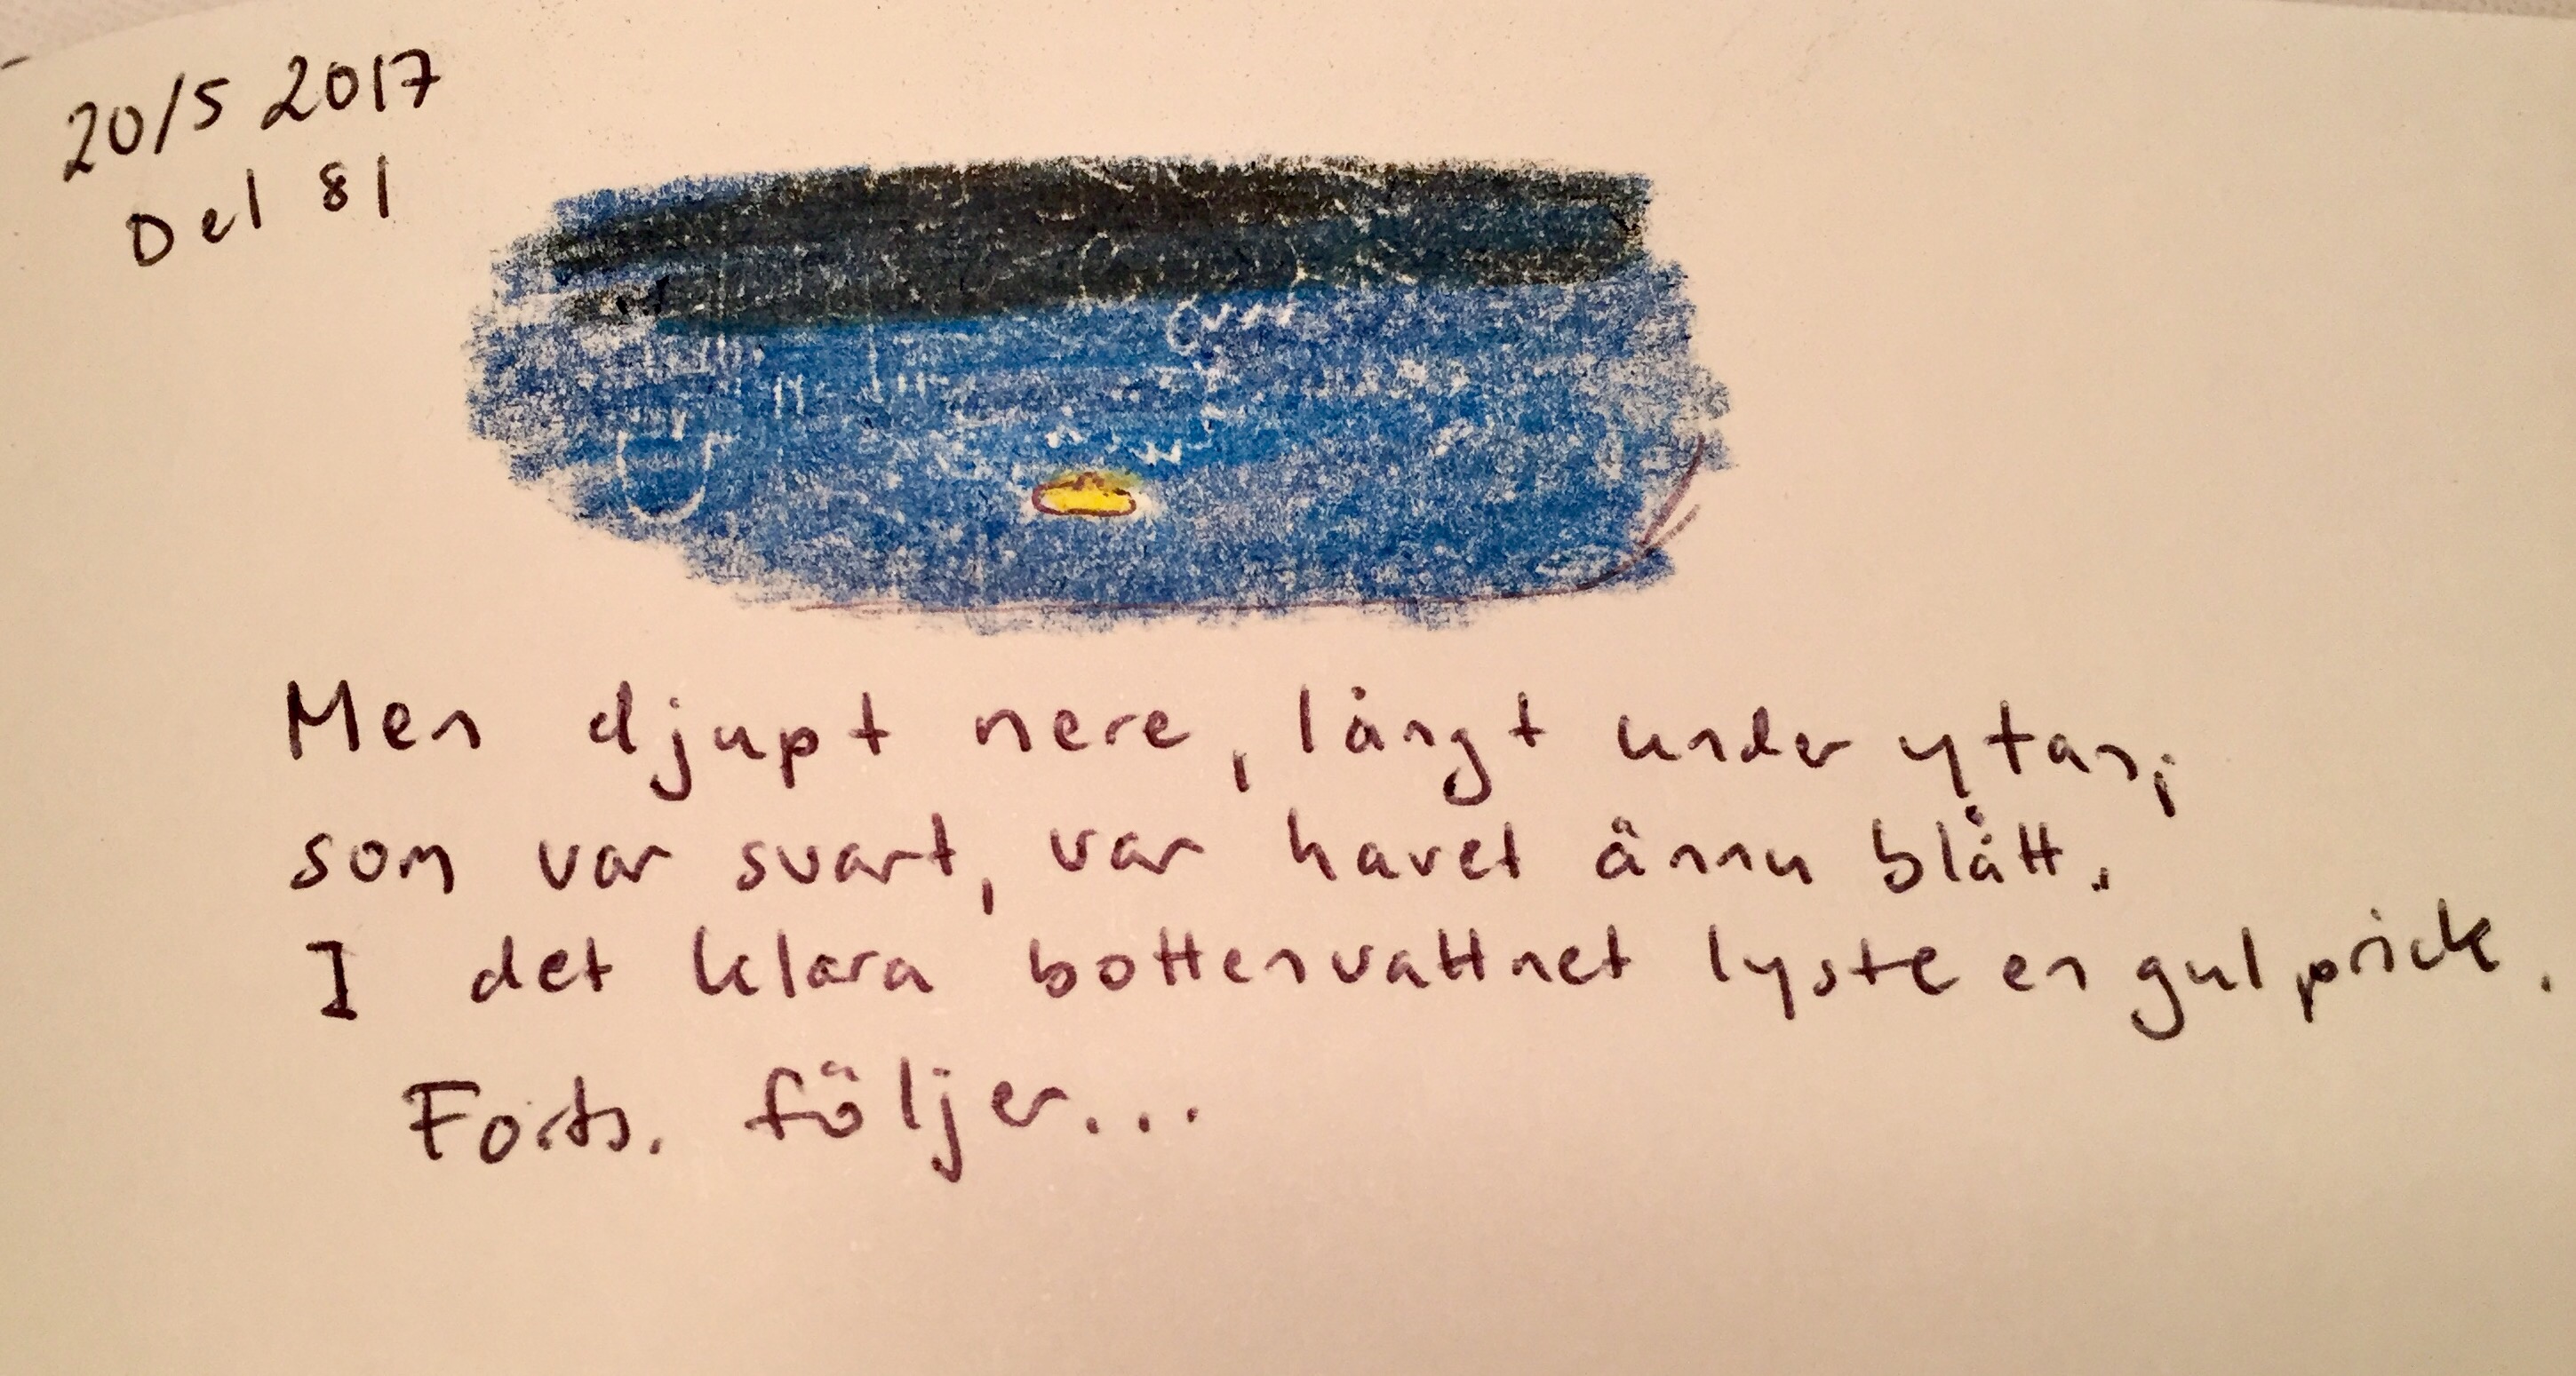 20/5 2017
Del 81
Men djupt nere, långt under ytan,
som var svart, var havet ännu blått.
I det klara bottenvattnet lyste en gul prick.
Forts. följer...